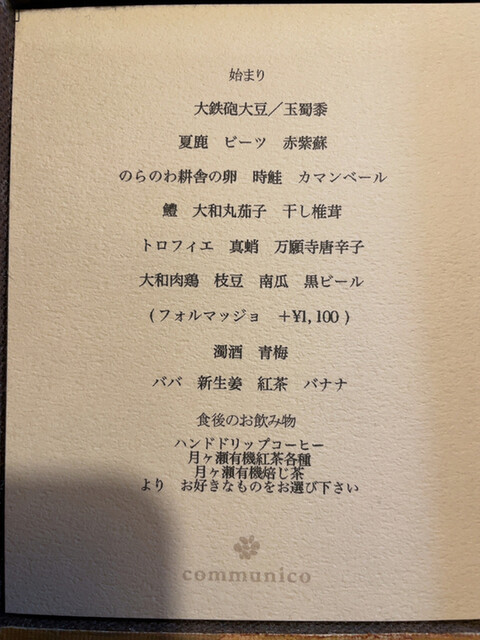 始まり
大鉄砲大豆／玉蜀黍
夏鹿　ビーツ　赤紫蘇
のらのわ耕舎の卵　時鮭　カマンベール
鱧　大和丸茄子　干し椎茸
トロフィエ　真蛸　万願寺唐辛子
大和肉鶏　枝豆　南瓜　黒ビール
(フォルマッジョ　+¥1,100)
濁酒　青梅
ババ　新生姜　紅茶　バナナ
食後のお飲み物
ハンドドリップコーヒー
月ヶ瀬有機紅茶各種
月ヶ瀬有機焙じ茶
より　お好きなものをお選び下さい
communico